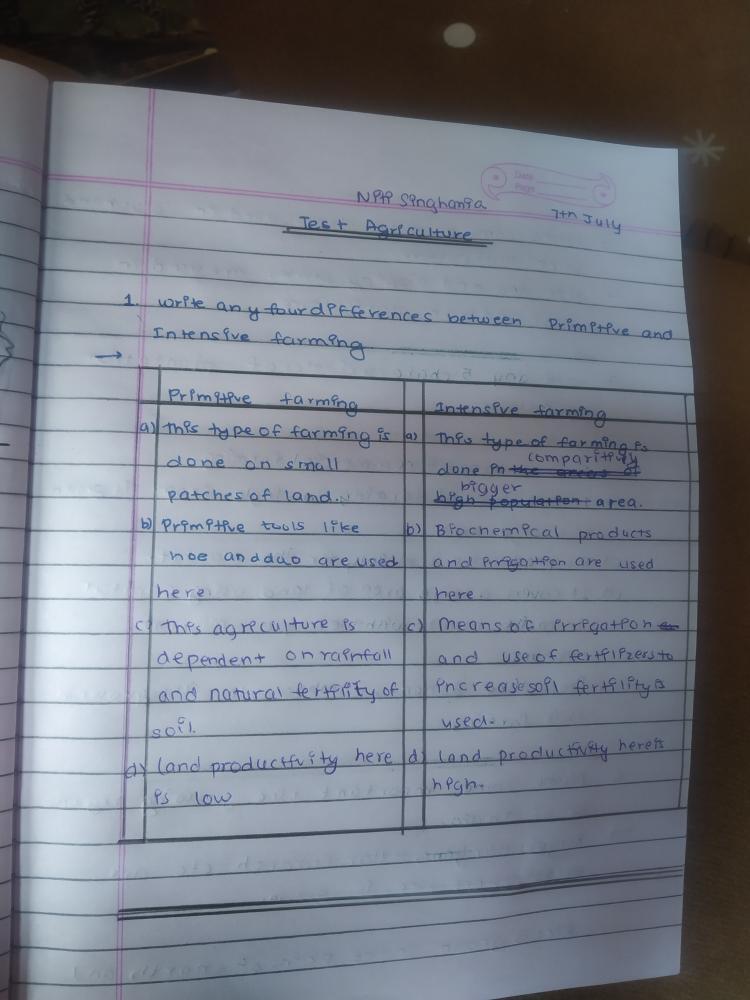 Date
Page
Niti Singhania
7th July
Test Agriculture
1. write any four differences between Primitive and
Intensive farming
→
Primitive farming
Intensive farming
a) this type of farming is
done on small
patches of land.
a) This type of farming is
comparitivly
done in the areas of
bigger
high population area.
b) Primitive tools like
hoe and dao are used
here.
b) Biochemical products
and irrigation are used
here.
c) This agriculture is
dependent on rainfall
and natural fertility of
soil.
c) Means of irrigation
and use of fertilizers to
increase soil fertility is
used.
d) land productivity here
is low
d) land productivity here is
high.